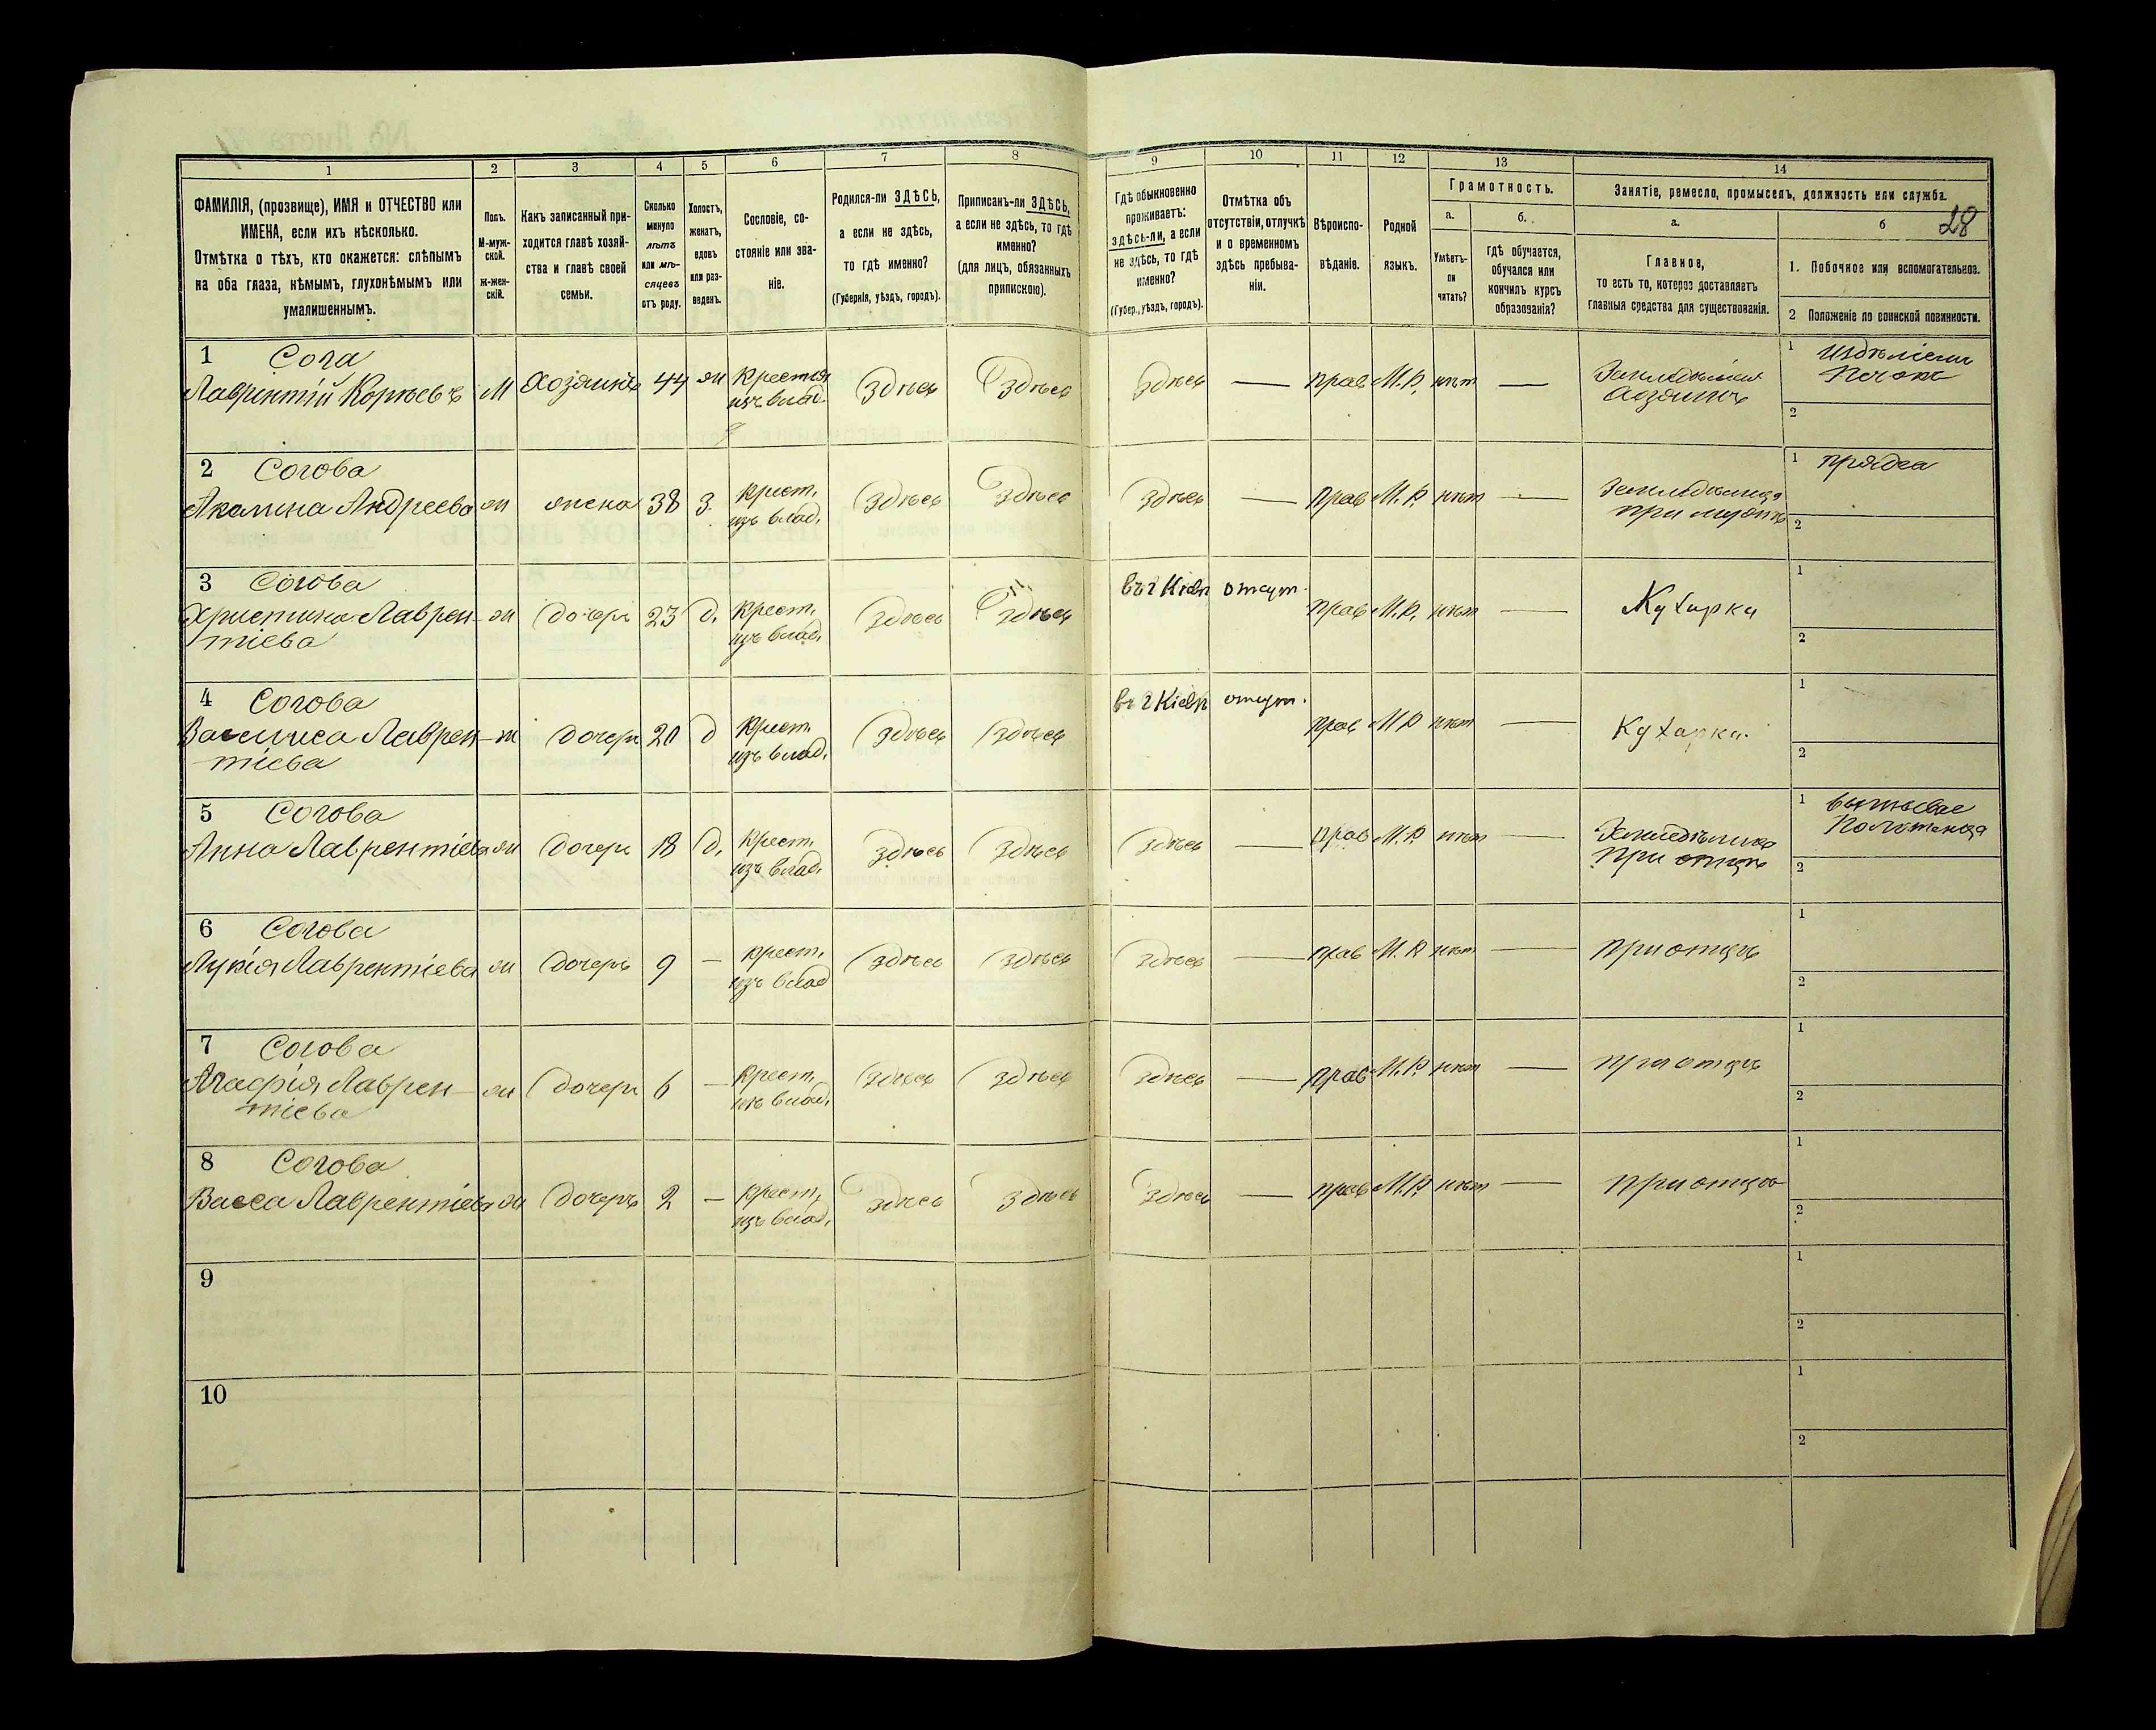 28
1
2
3
4
5
6
7
8
9
10
11
12
13
14
ФАМИЛІЯ, (прозвище), ИМЯ и ОТЧЕСТВО или
ИМЕНА, если ихъ нѣсколько.
Отмѣтка о тѣхъ, кто окажется: слѣпымъ
на оба глаза, нѣмымъ, глухонѣмымъ или
умалишеннымъ.
Полъ.
М-муж-
ской.
ж-жен-
скій.
Какъ записанный при-
ходится главѣ хозяй-
ства и главѣ своей
семьи.
Сколько
минуло
лѣтъ
или мѣ-
сяцевъ
отъ роду.
Холостъ,
женатъ,
вдовъ
или раз-
веденъ.
Сословіе, со-
стояніе или зва-
ніе.
Родился-ли ЗДѢСЬ,
а если не здѣсь,
то гдѣ именно?
(Губернія, уѣздъ, городъ).
Приписанъ-ли ЗДѢСЬ,
а если не здѣсь, то гдѣ
именно?
(для лицъ, обязанныхъ
припискою).
Гдѣ обыкновенно
проживаетъ:
здѣсь-ли, а если
не здѣсь, то гдѣ
именно?
(Губер., уѣздъ, городъ).
Отмѣтка объ
отсутствіи, отлучкѣ
и о временномъ
здѣсь пребыва-
ніи.
Вѣроиспо-
вѣданіе.
Родной
языкъ.
Грамотность.
а.
Умѣетъ-
ли
читать?
б.
Гдѣ обучается,
обучался или
кончилъ курсъ
образованія?
Занятіе, ремесло, промыселъ, должность или служба.
а.
Главное,
то есть то, которое доставляетъ
главныя средства для существованія.
б
1. Побочное или вспомогательное.
2 Положеніе по воинской повинности.
1 Сога
Лаврентій Корнѣевъ М Хозяинъ 44 ж Крестьян изъ влад. Здѣсь Здѣсь Здѣсь — прав М.Р. нѣт — Хозяинъ 1 2
2 Согова
Акилина Андреева ж жена 38 З. Крест. изъ влад. Здѣсь Здѣсь Здѣсь — прав М.Р. нѣт — при мужѣ 1 прядка 2
3 Согова
Христина Лаврен-
тіева ж дочерь 23 д. Крест. изъ влад. Здѣсь Здѣсь въ г Кіевѣ отсут. прав М.Р. нѣт — Кухарка 1 2
4 Согова
Василиса Лаврен-
тіева ж дочерь 20 д Крест. изъ влад. Здѣсь Здѣсь въ г Кіевѣ отсут. прав М.Р нѣт — Кухарка. 1 2
5 Согова
Анна Лаврентіева ж дочерь 18 д. Крест. изъ влад. Здѣсь Здѣсь Здѣсь — прав М.Р. нѣт — при отцѣ 1 2
6 Согова
Лукія Лаврентіева ж дочерь 9 — крест. изъ влад Здѣсь Здѣсь Здѣсь — прав М.Р нѣт — при отцѣ 1 2
7 Согова
Агафія Лаврен-
тіева ж дочерь 6 — Крест. изъ влад. Здѣсь Здѣсь Здѣсь — прав М.Р. нѣт — при отцѣ 1 2
8 Согова
Васса Лаврентіева ж дочерь 2 — Крест. изъ влад. Здѣсь Здѣсь Здѣсь — прав М.Р. нѣт — при отцѣ 1 2
9 1 2
10 1 2